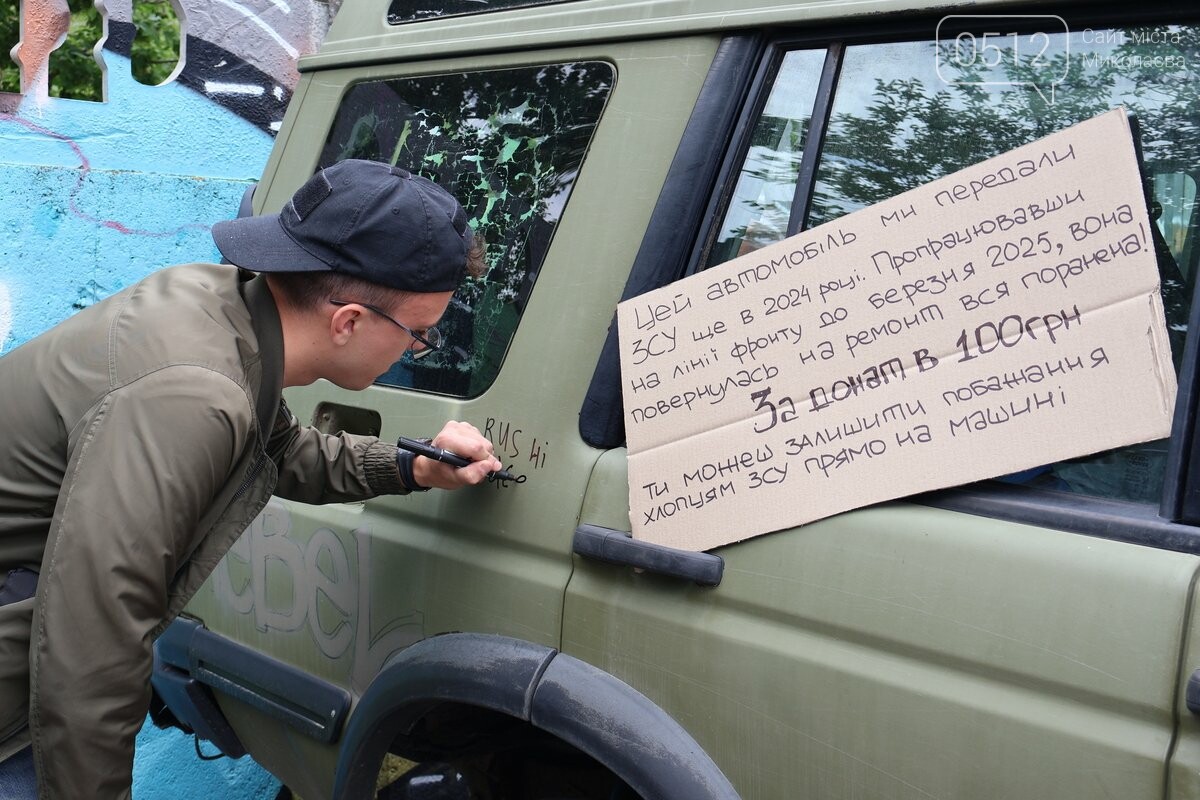 0512
Сайт міста
Миколаєва
Цей автомобіль ми передали
ЗСУ ще в 2024 році. Пропрацювавши
на лінії фронту до березня 2025, вона
повернулась на ремонт вся поранена!
За донат в 100грн
ти можеш залишити побажання
хлопцям ЗСУ прямо на машині
RUS НІ
REBEL